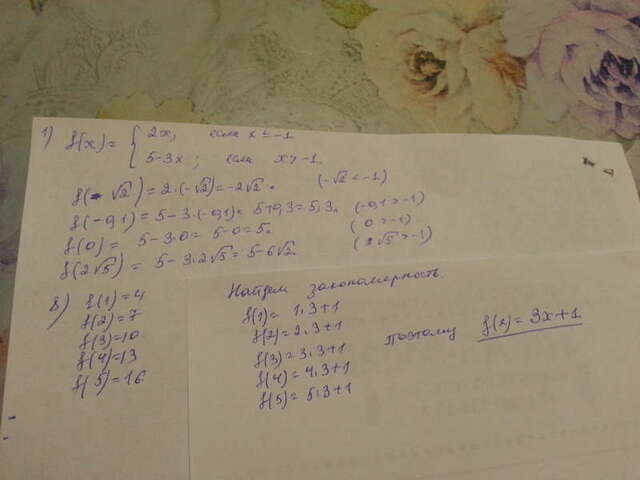 1) f(x) = { 2x, если x ≤ -1
5-3x; если x > -1.
f(-√2) = 2·(-√2) = -2√2. (-√2 < -1)
f(-0,1) = 5-3·(-0,1) = 5+0,3 = 5,3. (-0,1 > -1)
f(0) = 5-3·0 = 5-0 = 5. (0 > -1)
f(2√5) = 5-3·2√5 = 5-6√2. (2√5 > -1)
8) f(1) = 4
f(2) = 7
f(3) = 10
f(4) = 13
f(5) = 16
Найдем закономерность.
f(1) = 1·3+1
f(2) = 2·3+1
f(3) = 3·3+1
f(4) = 4·3+1
f(5) = 5·3+1
поэтому f(x) = 3x+1